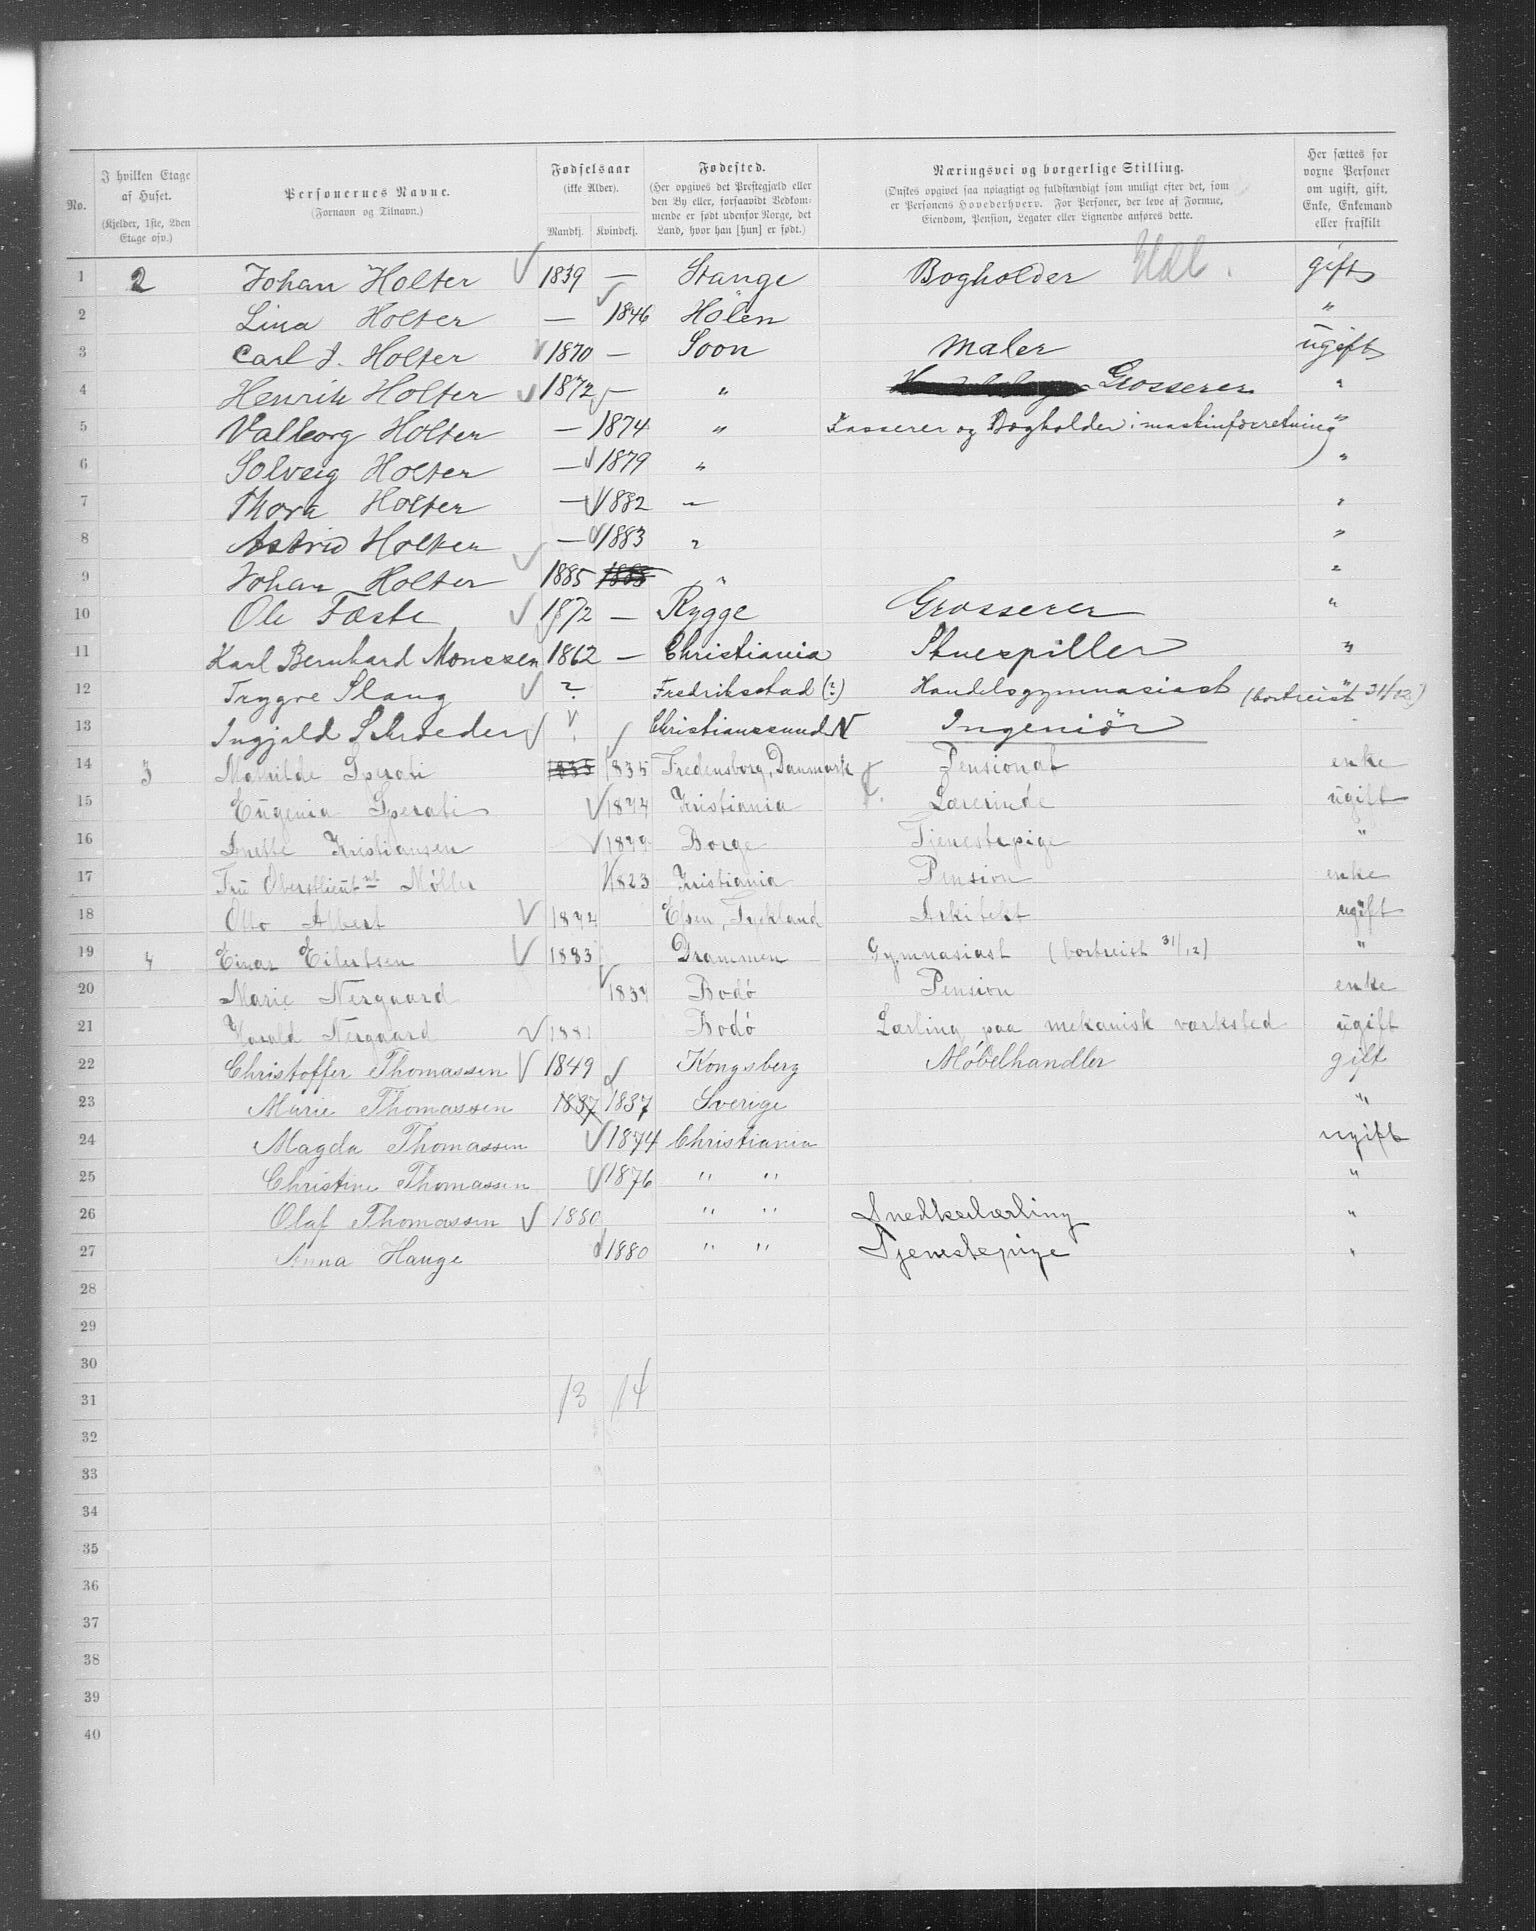 No. | I hvilken Etage af Huset. (Kjelder, 1ste, 2den Etage osv.) | Personernes Navne. (Fornavn og Tilnavn.) | Fødselsaar (ikke Alder). Mandkj. | Kvindekj. | Fødested. (Her opgives det Prestegjæld eller den By eller, forsaavidt Vedkommende er født udenfor Norge, det Land, hvor han [hun] er født.) | Næringsvei og borgerlige Stilling. (Ønskes opgivet saa nøiagtigt og fuldstændigt som muligt efter det, som er Personens Hovederhverv. For Personer, der leve af Formue, Eiendom, Pension, Legater eller Lignende anføres dette. | Her sættes for voxne Personer om ugift, gift, Enke, Enkemand eller fraskilt
1 2 Johan Holter √ 1839 — Stange Bogholder gift
2 Lina Holter — √ 1846 Hölen "
3 Carl J. Holter √ 1870 — Soon Maler ugift
4 Henrik Holter √ 1872 — " Grosserer "
5 Valborg Holter — √ 1874 " Kasserer og Bogholder i maskinforretning "
6 Solveig Holter — √ 1879 " "
7 Thora Holter — √ 1882 " "
8 Astrid Holter — √ 1883 " "
9 Johan Holter √ 1885 1885 " "
10 Ole Fæste √ 1872 — Rygge Grosserer "
11 Karl Bernhard Monssen 1862 — Christiania Skuespiller "
12 Trygve Slang √ ? Fredriksstad (?) Handelsgymnasiast (bortreist 31/12) "
13 Ingjald Schroeder √ ? Christianssund N Ingeniör
14 3 Mathilde Sperati 1835 √ 1835 Fredensborg, Danmark Pensionat enke
15 Eugenia Sperati √ 1874 Kristiania Lærerinde ugift
16 Anette Kristiansen √ 1879 Borge Tjenestepige "
17 Fru Oberstlieutnt Møller √ 1823 Kristiania Pension enke
18 Otto Albert √ 1872 Arkitekt ugift
19 4 Einar Eilertsen √ 1883 Drammen Gymnasiast (bortreist 31/12) "
20 Marie Nergaard √ 1837 Bodó Pension enke
21 Harald Nergaard √ 1881 Bodó Lærling paa mekanisk værksted ugift
22 Christoffer Thomassen √ 1849 Kongsberg Møbelhandler gift
23 Marie Thomassen 1837 √ 1837 Sverige "
24 Magda Thomassen √ 1874 Christiania ugift
25 Christine Thomassen √ 1876 " " "
26 Olaf Thomassen √ 1880 " " Snedkerlærling "
27 Anna Hauge √ 1880 " " Tjenestepige "
28
29
30
31 13 14
32
33
34
35
36
37
38
39
40